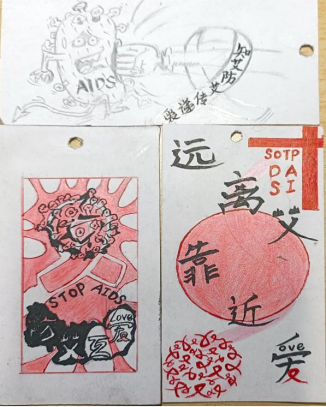 AIDS
知艾防
艾传递爱
STOP AIDS
Love
艾互
SOTP
D A
S I
远
离
艾
靠
近
ove
爱